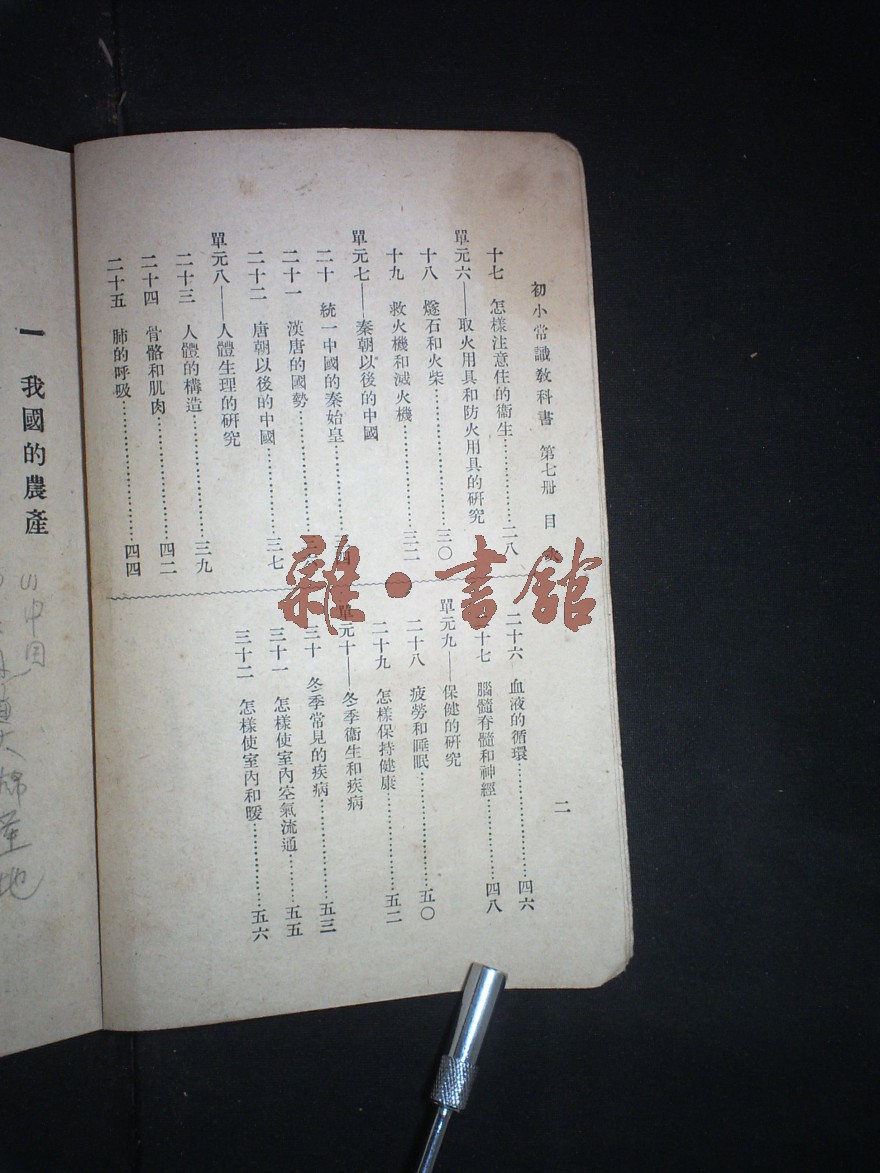 初小常識教科書　第七册　目
十七　怎樣注意住的衞生…………二八
單元六——取火用具和防火用具的硏究
十八　燧石和火柴…………三〇
十九　救火機和滅火機…………三二
單元七——秦朝以後的中國
二十　統一中國的秦始皇…………三四
二十一　漢唐的國勢…………
二十二　唐朝以後的中國…………三七
單元八——人體生理的硏究
二十三　人體的構造…………三九
二十四　骨骼和肌肉…………四二
二十五　肺的呼吸…………四四
二十六　血液的循環…………四六
十七　腦髓脊髓和神經…………四八
單元九——保健的硏究
二十八　疲勞和睡眠…………五〇
二十九　怎樣保持健康…………五二
單元十——冬季衞生和疾病
三十　冬季常見的疾病…………五三
三十一　怎樣使室內空氣流通…………五五
三十二　怎樣使室內和暖…………五六
二
一　我國的農產
中国
大棉產地
雜·書館